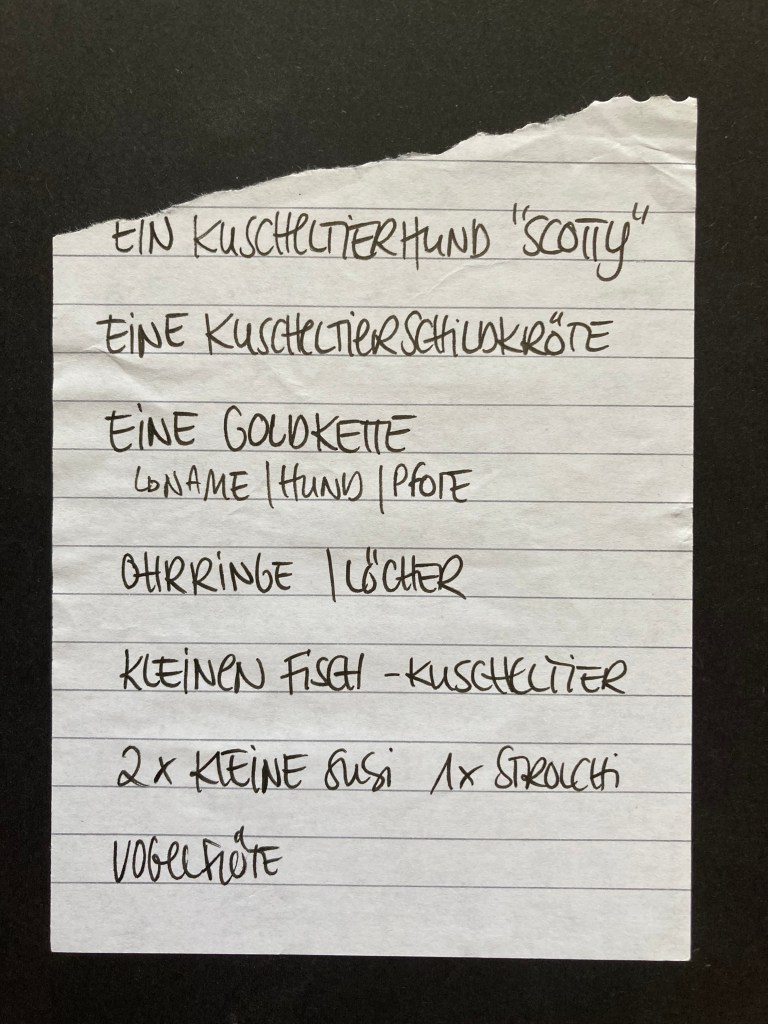 EIN KUSCHELTIERHUND "SCOTTY"
EINE KUSCHELTIERSCHILDKRÖTE
EINE GOLDKETTE
↳ NAME | HUND | PFOTE
OHRRINGE | LÖCHER
KLEINEN FISCH - KUSCHELTIER
2x KLEINE SUSI 1x STROLCHI
VOGELFLÖTE